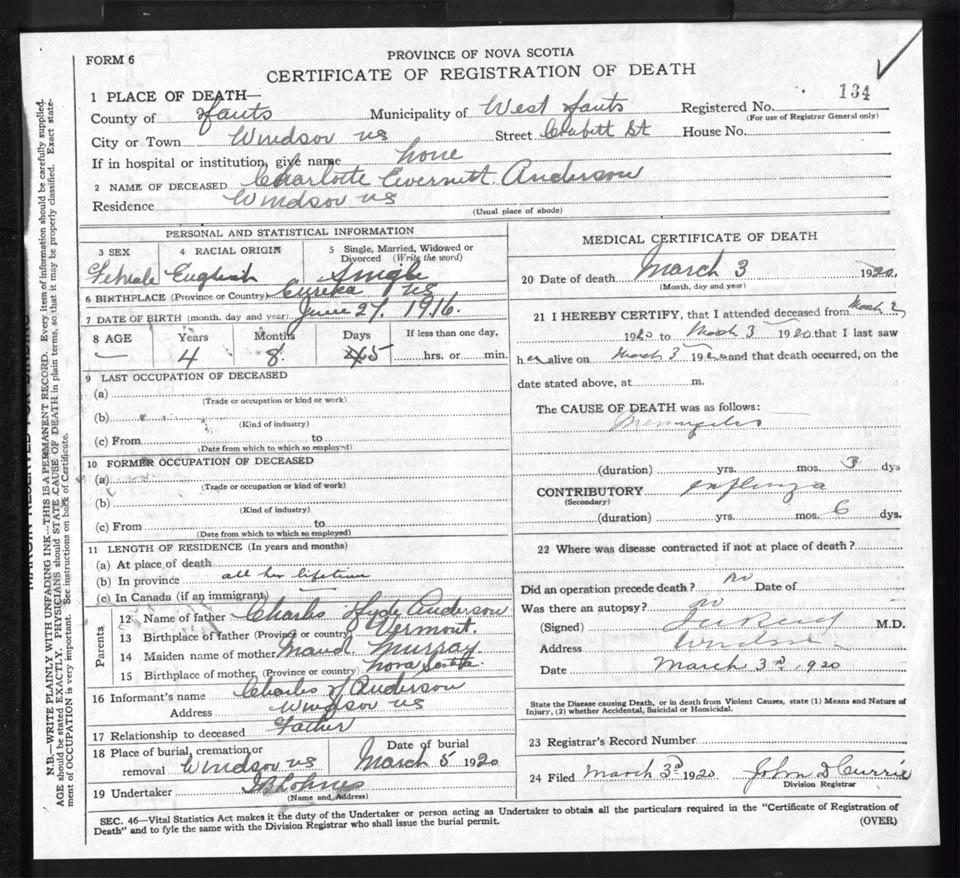 FORM 6
PROVINCE OF NOVA SCOTIA
CERTIFICATE OF REGISTRATION OF DEATH
134
1 PLACE OF DEATH—
County of Hants Municipality of West Hants Registered No.
(For use of Registrar General only)
City or Town Windsor NS Street St House No.
If in hospital or institution, give name home
2 NAME OF DECEASED Charlotte Evernett Anderson
Residence Windsor NS
(Usual place of abode)
PERSONAL AND STATISTICAL INFORMATION
3 SEX 4 RACIAL ORIGIN 5 Single, Married, Widowed or Divorced (Write the word)
Female English Single
6 BIRTHPLACE (Province or Country) Eureka NS
7 DATE OF BIRTH (month, day and year) June 27, 1916.
8 AGE Years Months Days If less than one day,
— 4 8 5 hrs. or min.
9 LAST OCCUPATION OF DECEASED
(a)
(Trade or occupation or kind or work)
(b)
(Kind of industry)
(c) From to
(Date from which to which so employed)
10 FORMER OCCUPATION OF DECEASED
(a)
(Trade or occupation or kind of work)
(b)
(Kind of industry)
(c) From to
(Date from which to which so employed)
11 LENGTH OF RESIDENCE (In years and months)
(a) At place of death
(b) In province all her lifetime
(c) In Canada (if an immigrant)
Parents
12 Name of father Charles Hyde Anderson
13 Birthplace of father (Province or country) Vermont.
14 Maiden name of mother Maud Murray
15 Birthplace of mother (Province or country) Nova Scotia
16 Informant's name Charles H Anderson
Address Windsor NS
17 Relationship to deceased Father
18 Place of burial, cremation or removal Windsor NS Date of burial March 5 1920
19 Undertaker
(Name and Address)
MEDICAL CERTIFICATE OF DEATH
20 Date of death March 3 1920.
(Month, day and year)
21 I HEREBY CERTIFY, that I attended deceased from March 2
1920 to March 3 1920 that I last saw
her alive on March 3 1920 and that death occurred, on the
date stated above, at m.
The CAUSE OF DEATH was as follows:
Meningitis
(duration) yrs. mos. 3 dys
CONTRIBUTORY influenza
(Secondary)
(duration) yrs. mos. 6 dys.
22 Where was disease contracted if not at place of death?
Did an operation precede death? no Date of
Was there an autopsy? no
(Signed) M.D.
Address Windsor
Date March 3rd, 1920
State the Disease causing Death, or in death from Violent Causes, state (1) Means and Nature of
Injury, (2) whether Accidental, Suicidal or Homicidal.
23 Registrar's Record Number
24 Filed March 3rd 1920 John D Currie
Division Registrar
SEC. 46—Vital Statistics Act makes it the duty of the Undertaker or person acting as Undertaker to obtain all the particulars required in the "Certificate of Registration of
Death" and to fyle the same with the Division Registrar who shall issue the burial permit. (OVER)
N.B.—WRITE PLAINLY WITH UNFADING INK—THIS IS A PERMANENT RECORD. Every item of information should be carefully supplied.
AGE should be stated EXACTLY. PHYSICIANS should STATE CAUSE OF DEATH in plain terms, so that it may be properly classified. Exact state-
ment of OCCUPATION is very important. See instructions on back of Certificate.